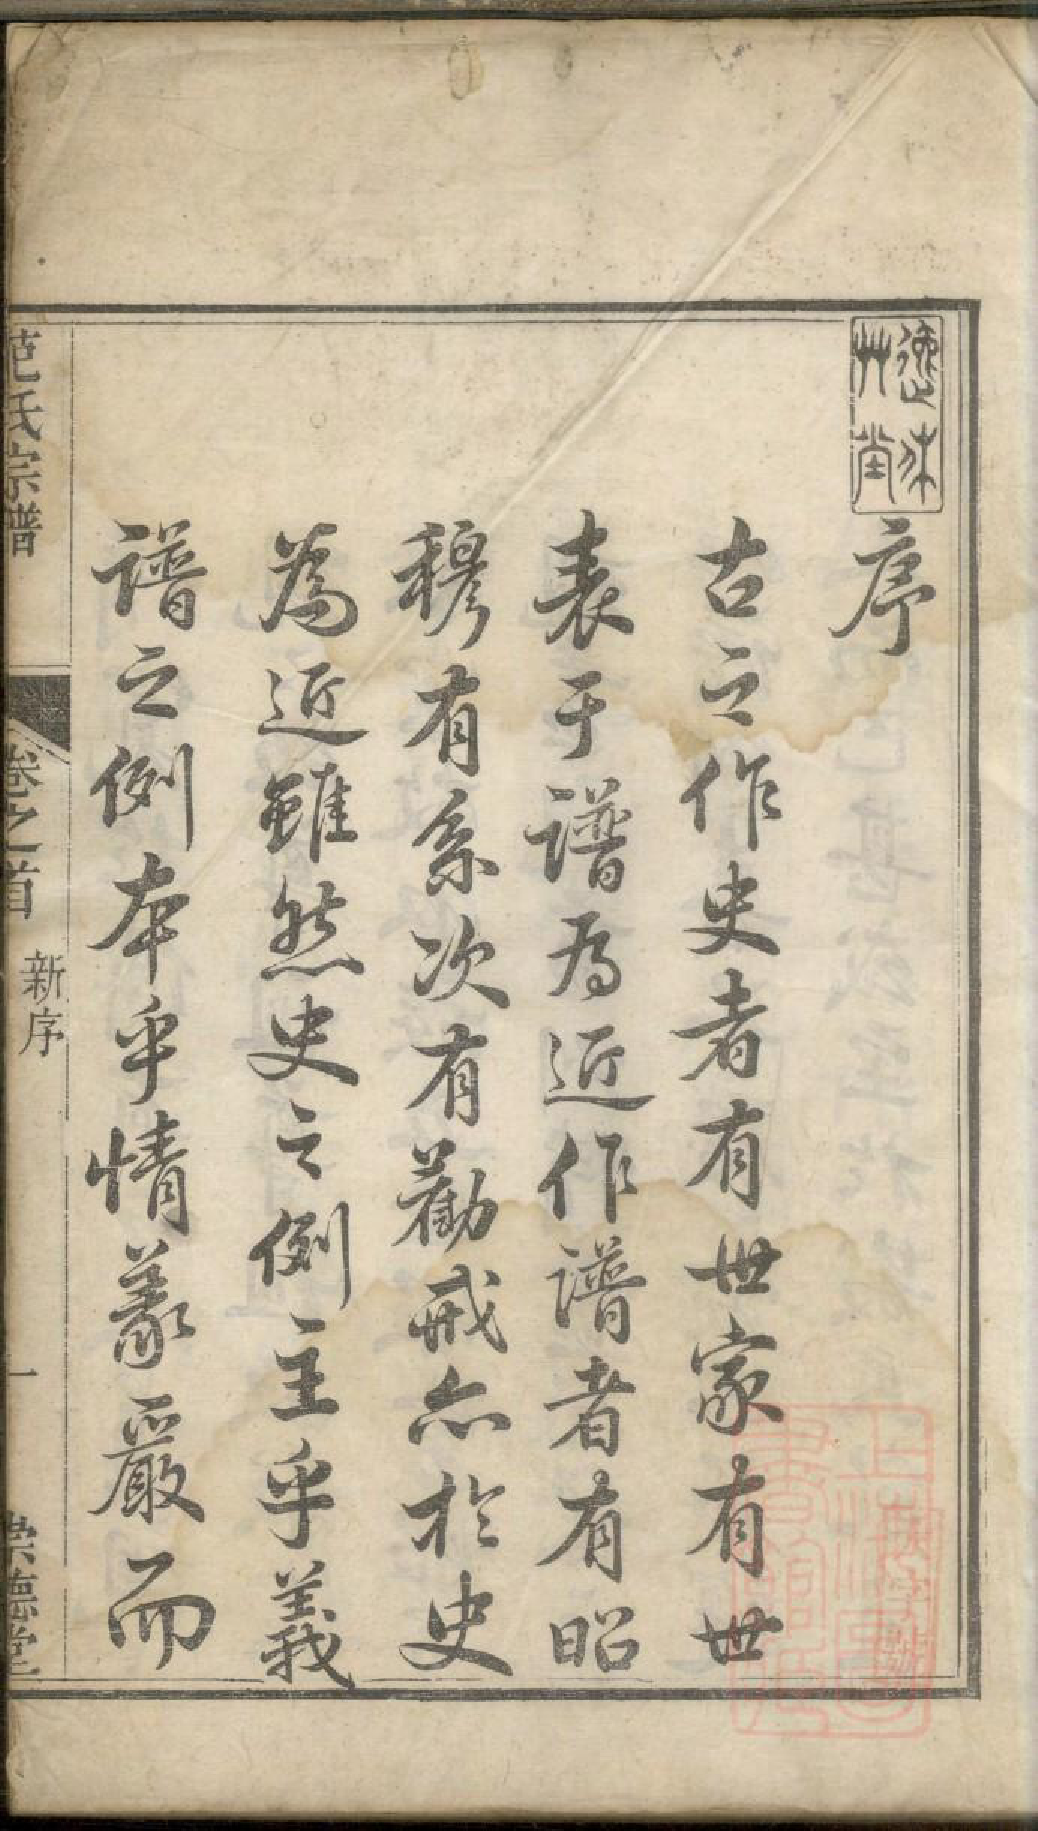 序
古之作史者有世家有世
表于譜為近作譜者有昭
穆有系次有勸戒亦於史
為近雖然史之例主乎義
譜之例本乎情義嚴而
范氏宗譜
卷之首
新序
一
崇德堂